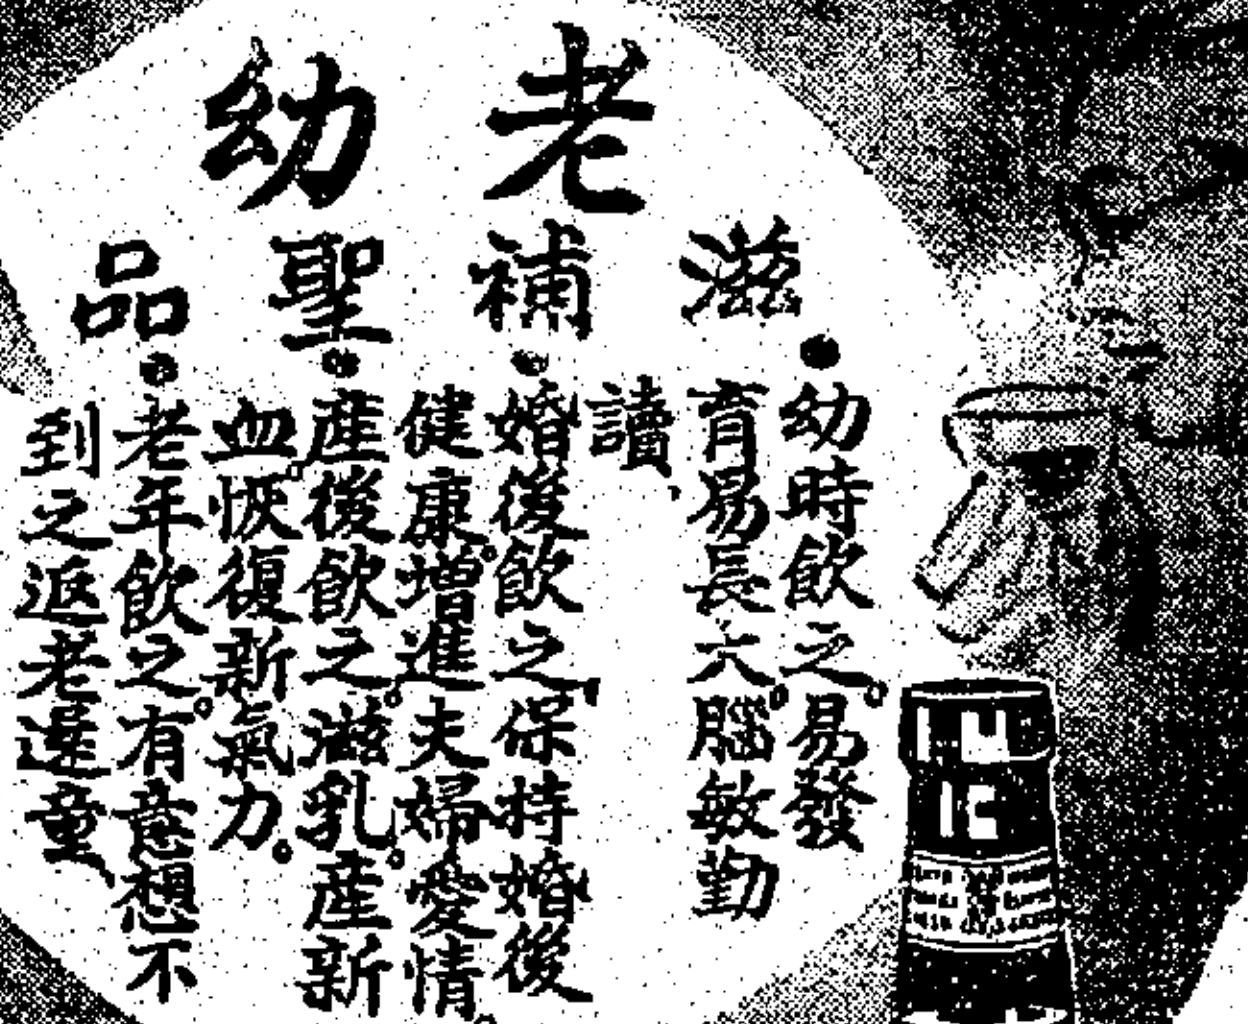 老幼
滋補聖品
●幼時飲之。易發
育易長大。腦敏勤
讀、
●婚後飲之、保持婚後
健康。增進夫婦愛情。
●產後飲之。滋乳。產新
血。恢復新氣力。
●老年飲之。有意想不
到之返老還童、